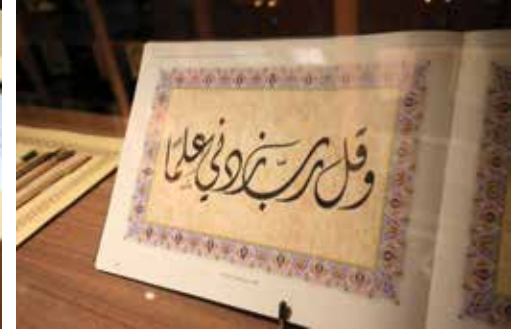 وقل رب زدني علمًا